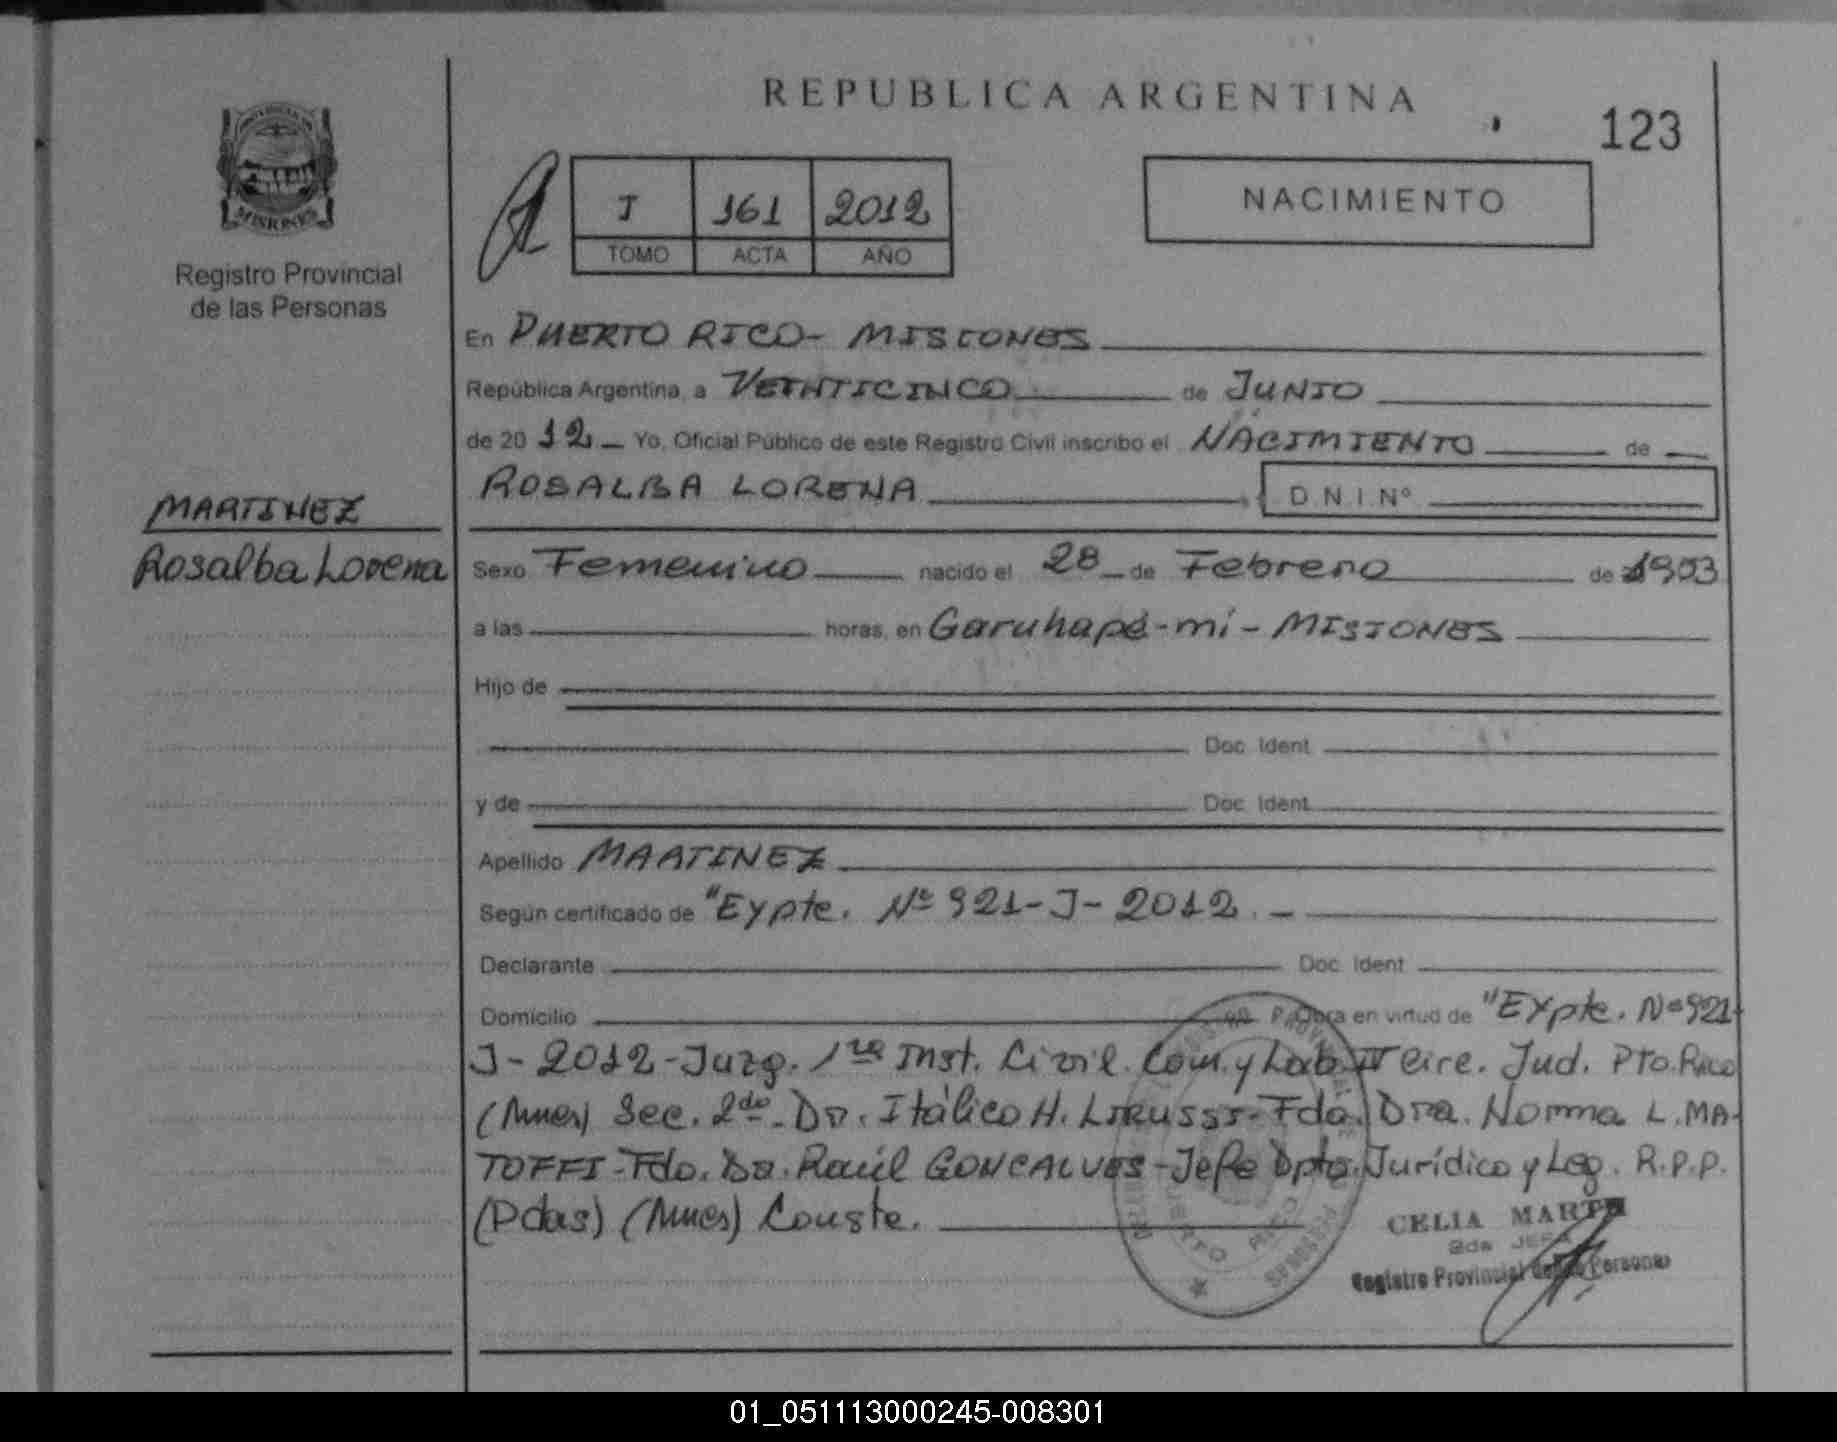 REPUBLICA ARGENTINA
123
MISIONES
Registro Provincial
de las Personas
I 161 2012
TOMO ACTA AÑO
NACIMIENTO
En PUERTO RICO- MISIONES
República Argentina, a VEINTICINCO de JUNIO
de 2012 Yo, Oficial Público de este Registro Civil inscribo el NACIMIENTO de
ROSALBA LORENA D.N.I. Nº
MARTINEZ
Rosalba Lorena
Sexo Femenino nacido el 28 de Febrero de 1983
a las horas, en Garuhapé-mí - MISIONES
Hijo de
Doc. Ident.
y de Doc. Ident.
Apellido MARTINEZ
Según certificado de "Expte. Nº 921-J-2012.-
Declarante Doc. Ident.
Domicilio Obra en virtud de "Expte. Nº 921-
J-2012-Juzg. 1ra Inst. Civil. Com. y Lab. IV Circ. Jud. Pto. Rico
(Mnes) Sec. 2da - Dr. Itálico H. Fdo. Dra. Norma L. MA-
TOFFI-Fdo. Dr. Raúl GONCALVES-Jefe Dpto. Jurídico y Leg. R.P.P.
(Pdas) (Mnes) Conste.
PUERTO RICO
CELIA MARTA
2da JEFA
Registro Provincial de las Personas
01_051113000245-008301